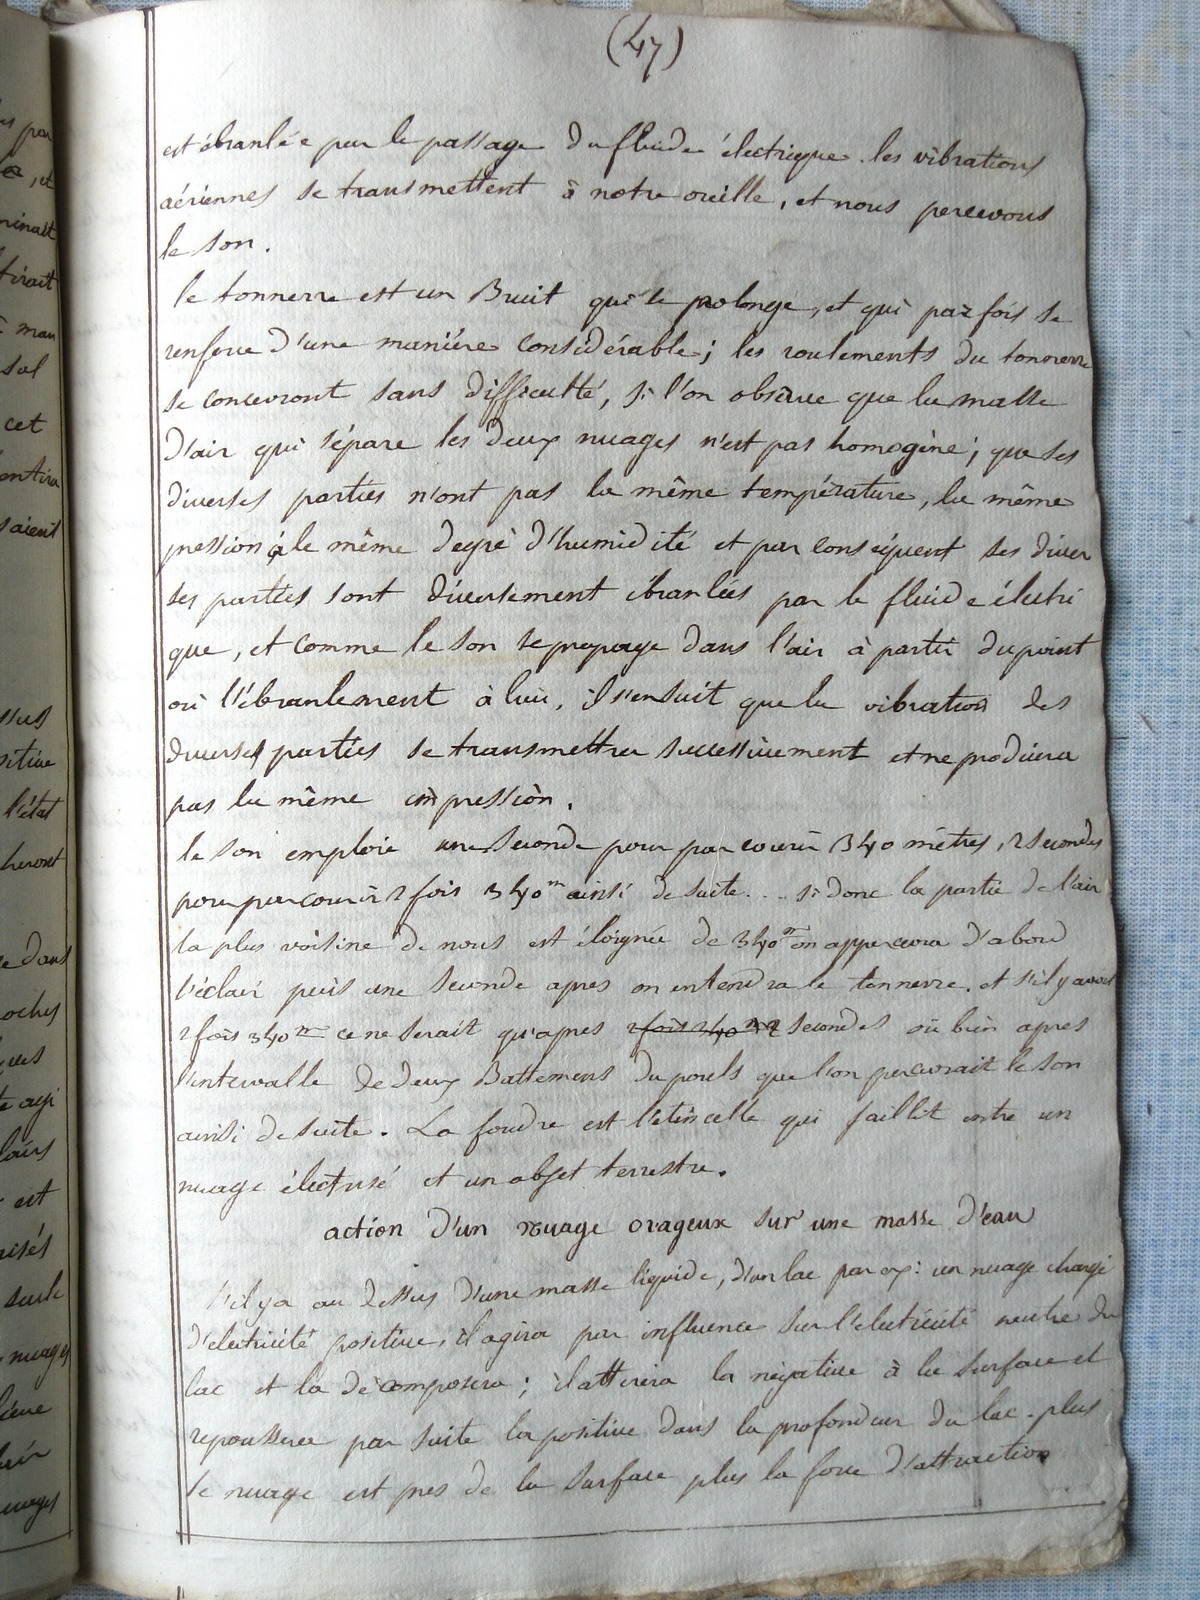 (47)
est ébranlée par le passage du fluide électrique. les vibrations
aériennes se transmettent à notre oreille, et nous percevons
le son.
le tonnerre est un Bruit qui se prolonge, et qui parfois se
renforce d'une manière considérable; les roulements du tonnerre
se concevront sans difficulté, si l'on observe que la masse
d'air qui sépare les deux nuages n'est pas homogène; que ses
diverses parties n'ont pas la même température, la même
pression, le même degré d'humidité et par conséquent ses diver
ses parties sont diversement ébranlées par le fluide électri
que, et comme le son se propage dans l'air à partir du point
où l'ébranlement à lieu, il s'ensuit que la vibration des
diverses parties se transmettra successivement et ne produira
pas la même impression.
le son emploie une seconde pour parcourir 340 mètres, 2 secondes
pour parcourir 2 fois 340m ainsi de suite... si donc la partie de l'air
la plus voisine de nous est éloignée de 340m on appercevra d'abord
l'éclair puis une seconde apres on entendra le tonnerre. et s'il y avait
2 fois 340m ce ne serait qu'apres 2 fois 340m 2 secondes ou bien apres
l'intervalle de deux Battemens du pouls que l'on percevrait le son
ainsi de suite. La foudre est l'étincelle qui jaillit entre un
nuage électrisé et un objet terrestre.
action d'un nuage orageux sur une masse d'eau
s'il y a au dessus d'une masse liquide, d'un lac par ex: un nuage chargé
d'électricité positive, il agira par influence sur l'électricité neutre du
lac et la décomposera; il attirera la négative à la surface et
repoussera par suite la positive dans la profondeur du lac. plus
le nuage est pres de la surface plus la force d'attraction
par
, et
minait
tirait
man
sol
cet
saient
ssus
sitive
l'état
heront
dans
oches
agi
est
seule
nuages
nuages